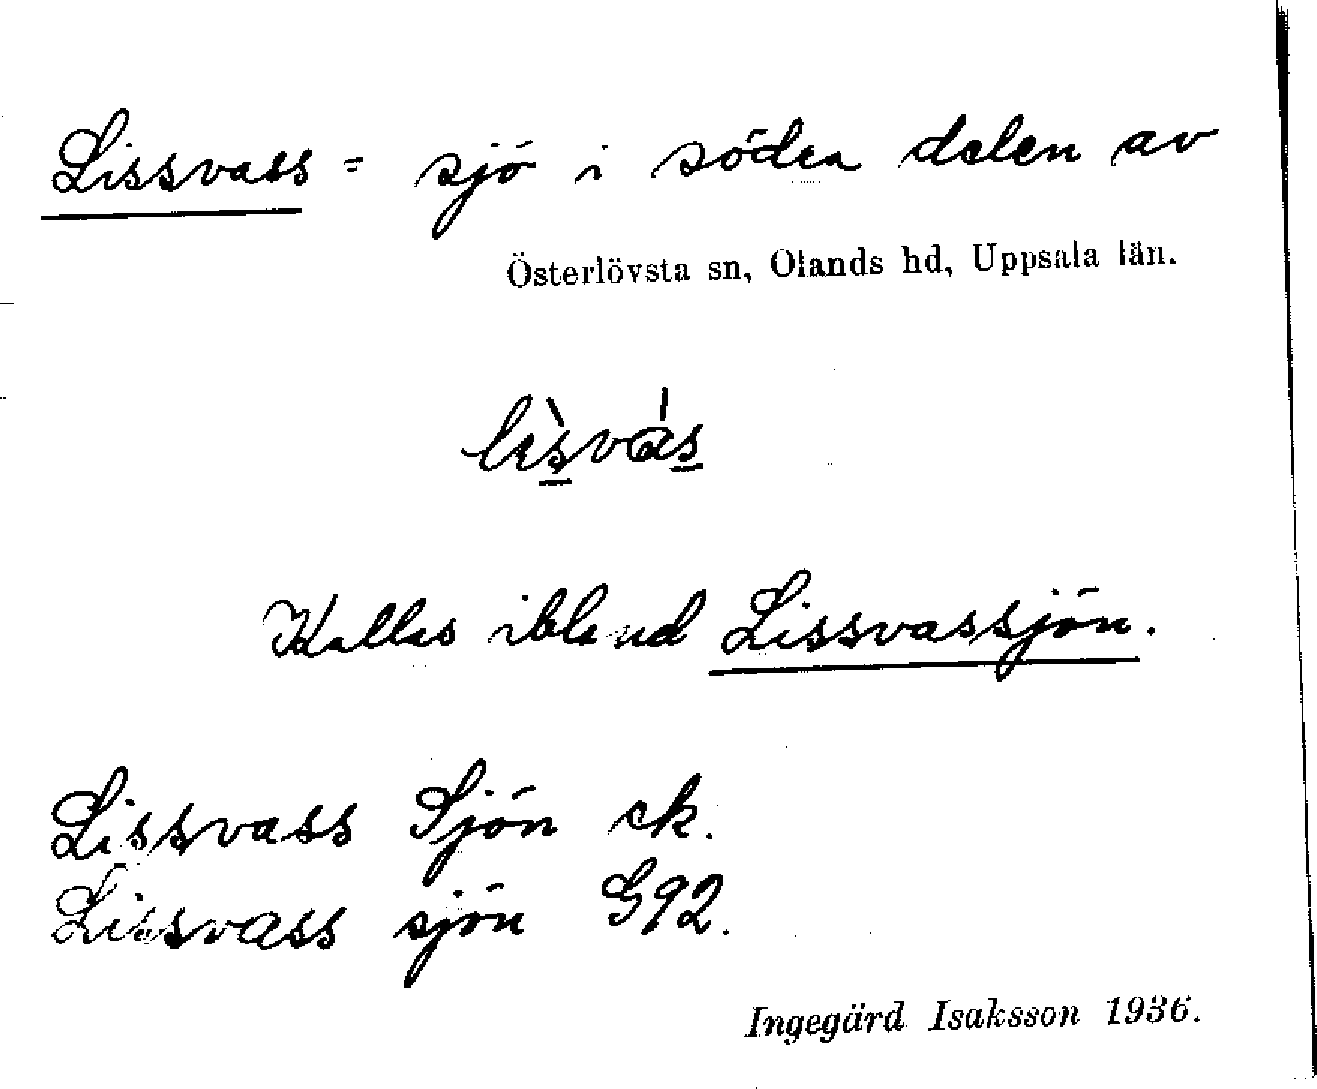 Lissvass = sjö i södra delen av
Österlövsta sn, Olands hd, Uppsala län.
lìsvás
Kallas ibland Lissvassjön.
Lissvass Sjön ek.
Lissvass sjön G92.
Ingegärd Isaksson 1936.